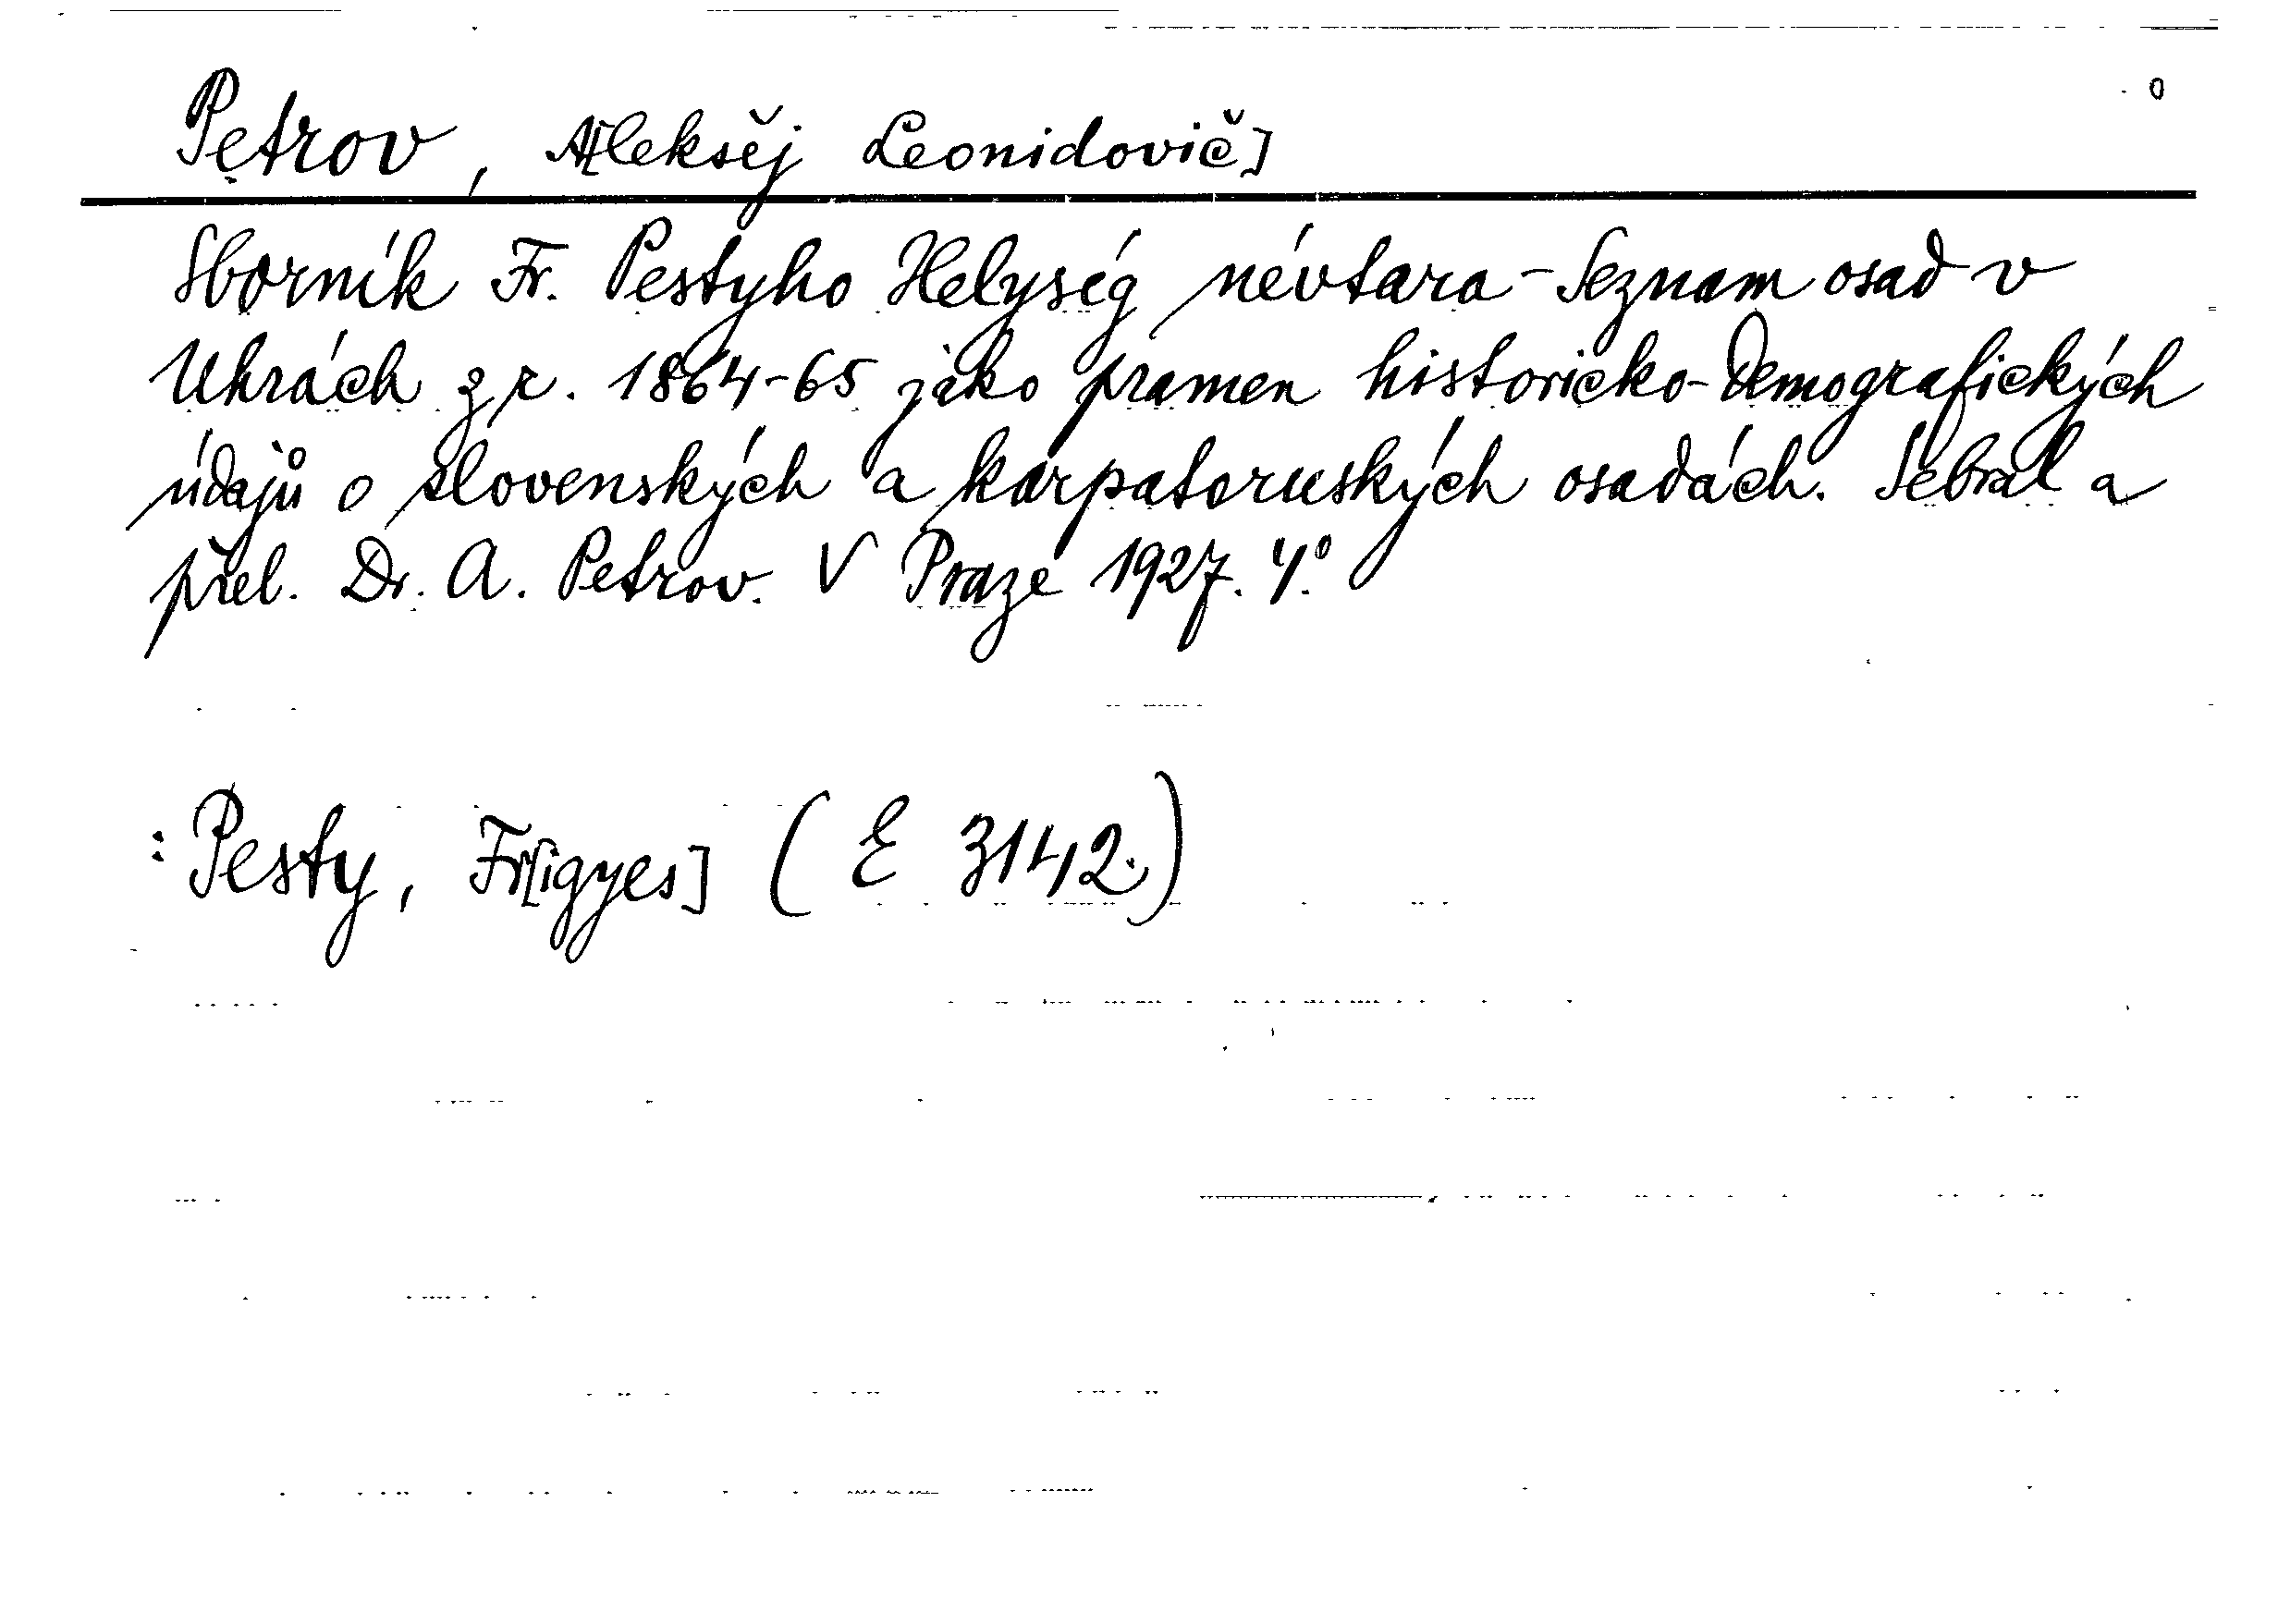 Petrov, A[leksěj Leonidovič]
Sborník Fr. Pestyho Helység névtara - Seznam osad v
Uhrách z r. 1864-65 jako pramen historicko-demografických
údajů o slovenských a karpatoruských osadách. Sebral a
přel. Dr. A. Petrov. V Praze 1927. 4°.
: Pesty, Fr[igyes] (E 3142.)